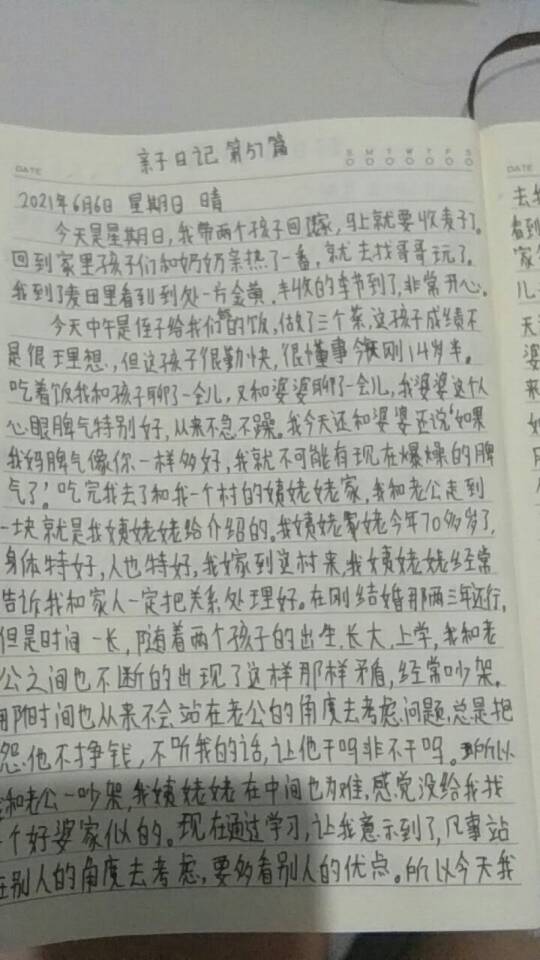 亲子日记 第57篇
DATE
S M T W T F S
2021年6月6日 星期日 晴
今天是星期日，我带两个孩子回家，马上就要收麦子了。
回到家里孩子们和奶奶亲热了一番，就去找哥哥玩了。
我到了麦田里看到到处一片金黄，丰收的季节到了，非常开心。
今天中午是侄子给我们做的饭，做了三个菜，这孩子成绩不
是很理想，但这孩子很勤快，很懂事今天刚14岁半。
吃着饭我和孩子聊了一会儿，又和婆婆聊了一会儿，我婆婆这个人
心眼脾气特别好，从来不急不躁。我今天还和婆婆还说"如果
我妈脾气像你一样多好，我就不可能有现在爆燥的脾
气了！吃完我去了和我一个村的姨姥姥家，我和老公走到
一块就是我姨姥姥给介绍的。我姨姥姥今年70多岁了，
身体特好，人也特好，我嫁到这村来，我姨姥姥经常
告诉我和家人一定把关系处理好。在刚结婚那两三年还行，
但是时间一长，随着两个孩子的出生、长大、上学，我和老
公之间也不断的出现了这样那样矛盾，经常吵架。
那时间也从来不会站在老公的角度去考虑问题，总是把
怨他不挣钱，不听我的话，让他干吗非不干吗。所以
和老公一吵架，我姨姥姥在中间也为难，感觉没给我找
个好婆家似的。现在通过学习，让我意示到了，凡事站
在别人的角度去考虑，要多看别人的优点。所以今天我
DATE
去我
看到
家
儿
天
婆
来